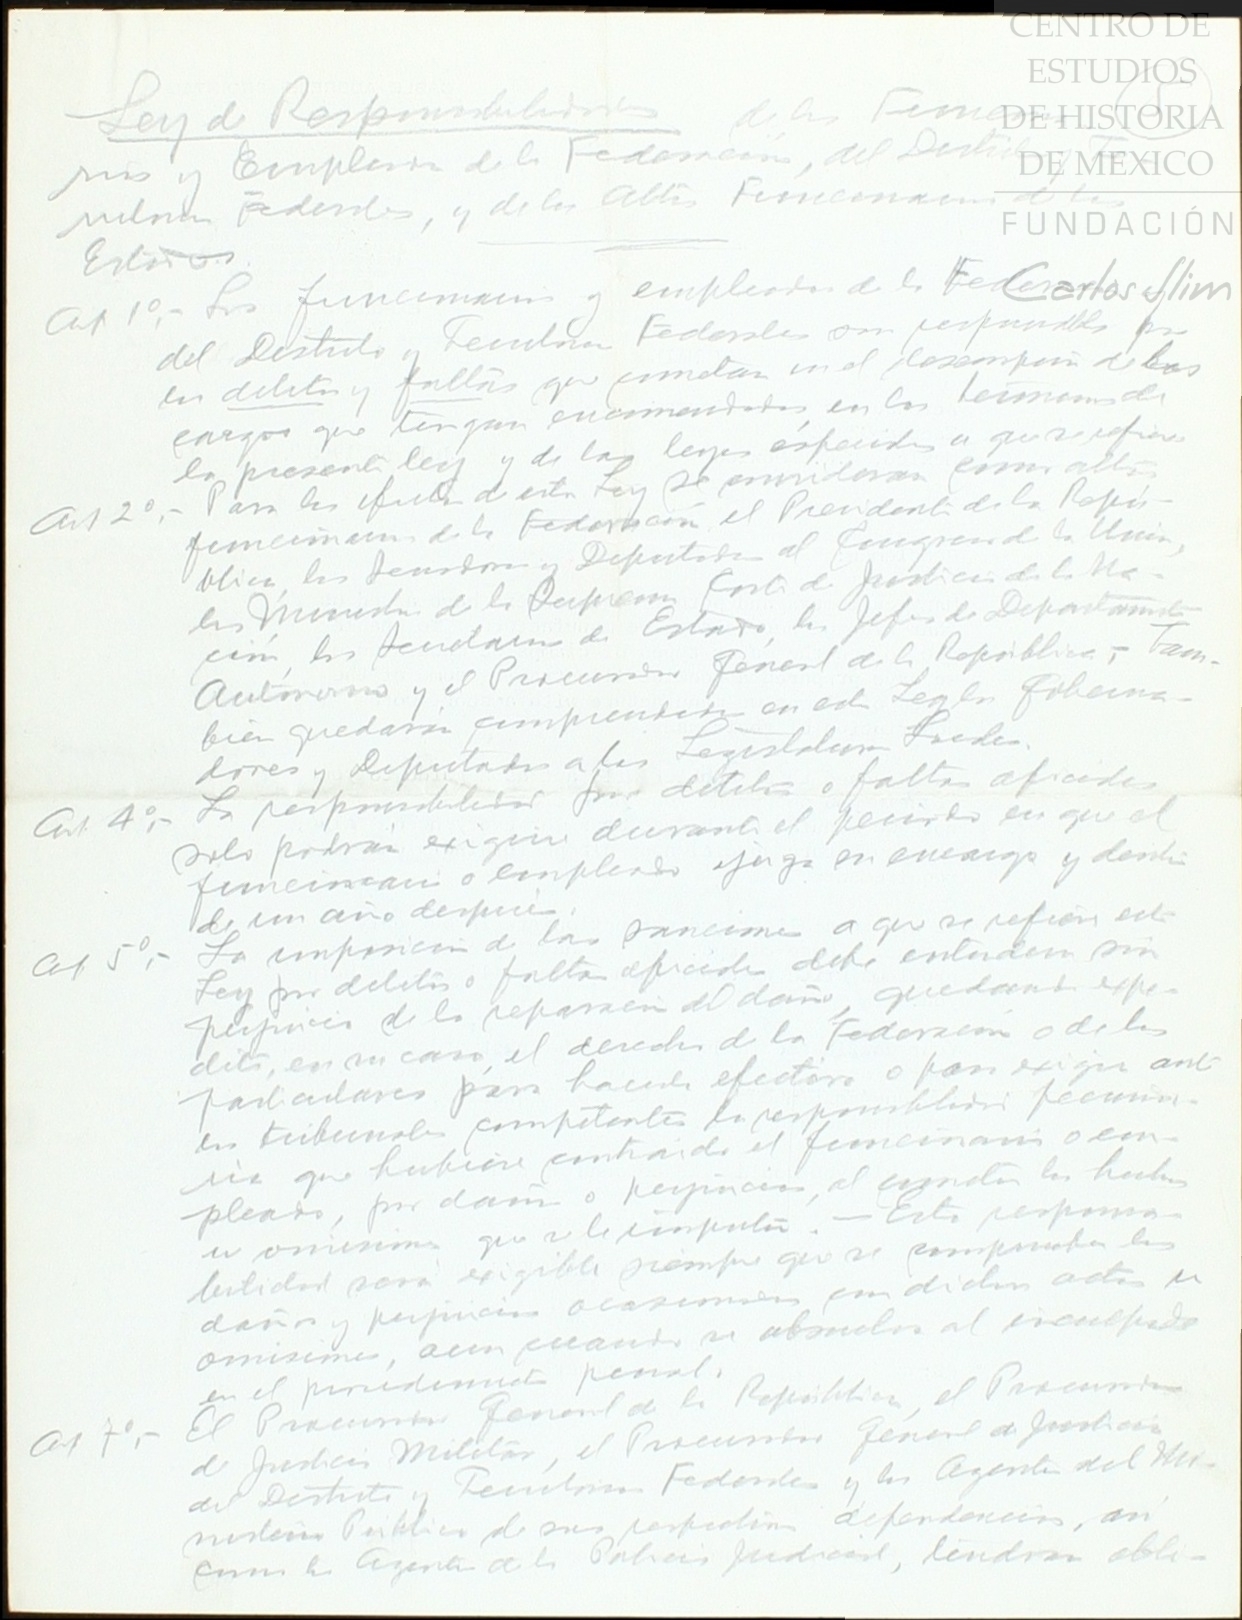 CENTRO DE
ESTUDIOS
DE HISTORIA
DE MEXICO
FUNDACIÓN
Carlos Slim
Ley de Responsabilidades de los Funciona-
rios y Empleados de la Federación, del Distrito y
Federales, y de los Altos Funcionarios de los
Estados.
Art 1º,- Los funcionarios y empleados de la
del Distrito y Territorios Federales son responsables
en delitos y faltas que cometan en el desempeño de los
cargos que tengan encomendados en los términos de
la presente ley y de las leyes especiales a que se refiere
Art 2º,- Para los efectos de esta Ley se consideran como altos
funcionarios de la Federación, el Presidente de la Repú-
blica, los Senadores y Diputados al Congreso de la Unión,
los Ministros de la Suprema Corte de Justicia de la Na-
ción, los Secretarios de Estado, los Jefes de Departamento
Autónomo y el Procurador General de la República,- Tam-
bién quedarán comprendidos en esta Ley los Goberna-
dores y Diputados a las Legislaturas Locales.
Art. 4º,- La responsabilidad por delitos o faltas oficiales
solo podrán exigirse durante el periodo en que el
funcionario o empleado ejerza su encargo y dentro
de un año después.
Art 5º,- La imposición de las sanciones a que se refiere esta
Ley por delitos o faltas oficiales debe entenderse sin
perjuicio de la reparación del daño, quedando expe-
dito, en su caso, el derecho de la Federación o de los
particulares para hacerlo efectivo o para exigir ante
los tribunales competentes la responsabilidad pecunia-
ria que hubiere contraído el funcionario o em-
pleado, por daños o perjuicios, al cometer los hechos
u omisiones que se le imputen. — Esta responsa-
bilidad será exigible siempre que se comprueben los
daños y perjuicios ocasionados con dichos actos u
omisiones, aun cuando se absuelva al inculpado
en el procedimiento penal.
Art 7º,- El Procurador General de la República, el Procurador
de Justicia Militar, el Procurador General de Justicia
del Distrito y Territorios Federales y los Agentes del Mi-
nisterio Público de sus respectivas dependencias, así
como los Agentes de la Policía Judicial, tendrán obli-